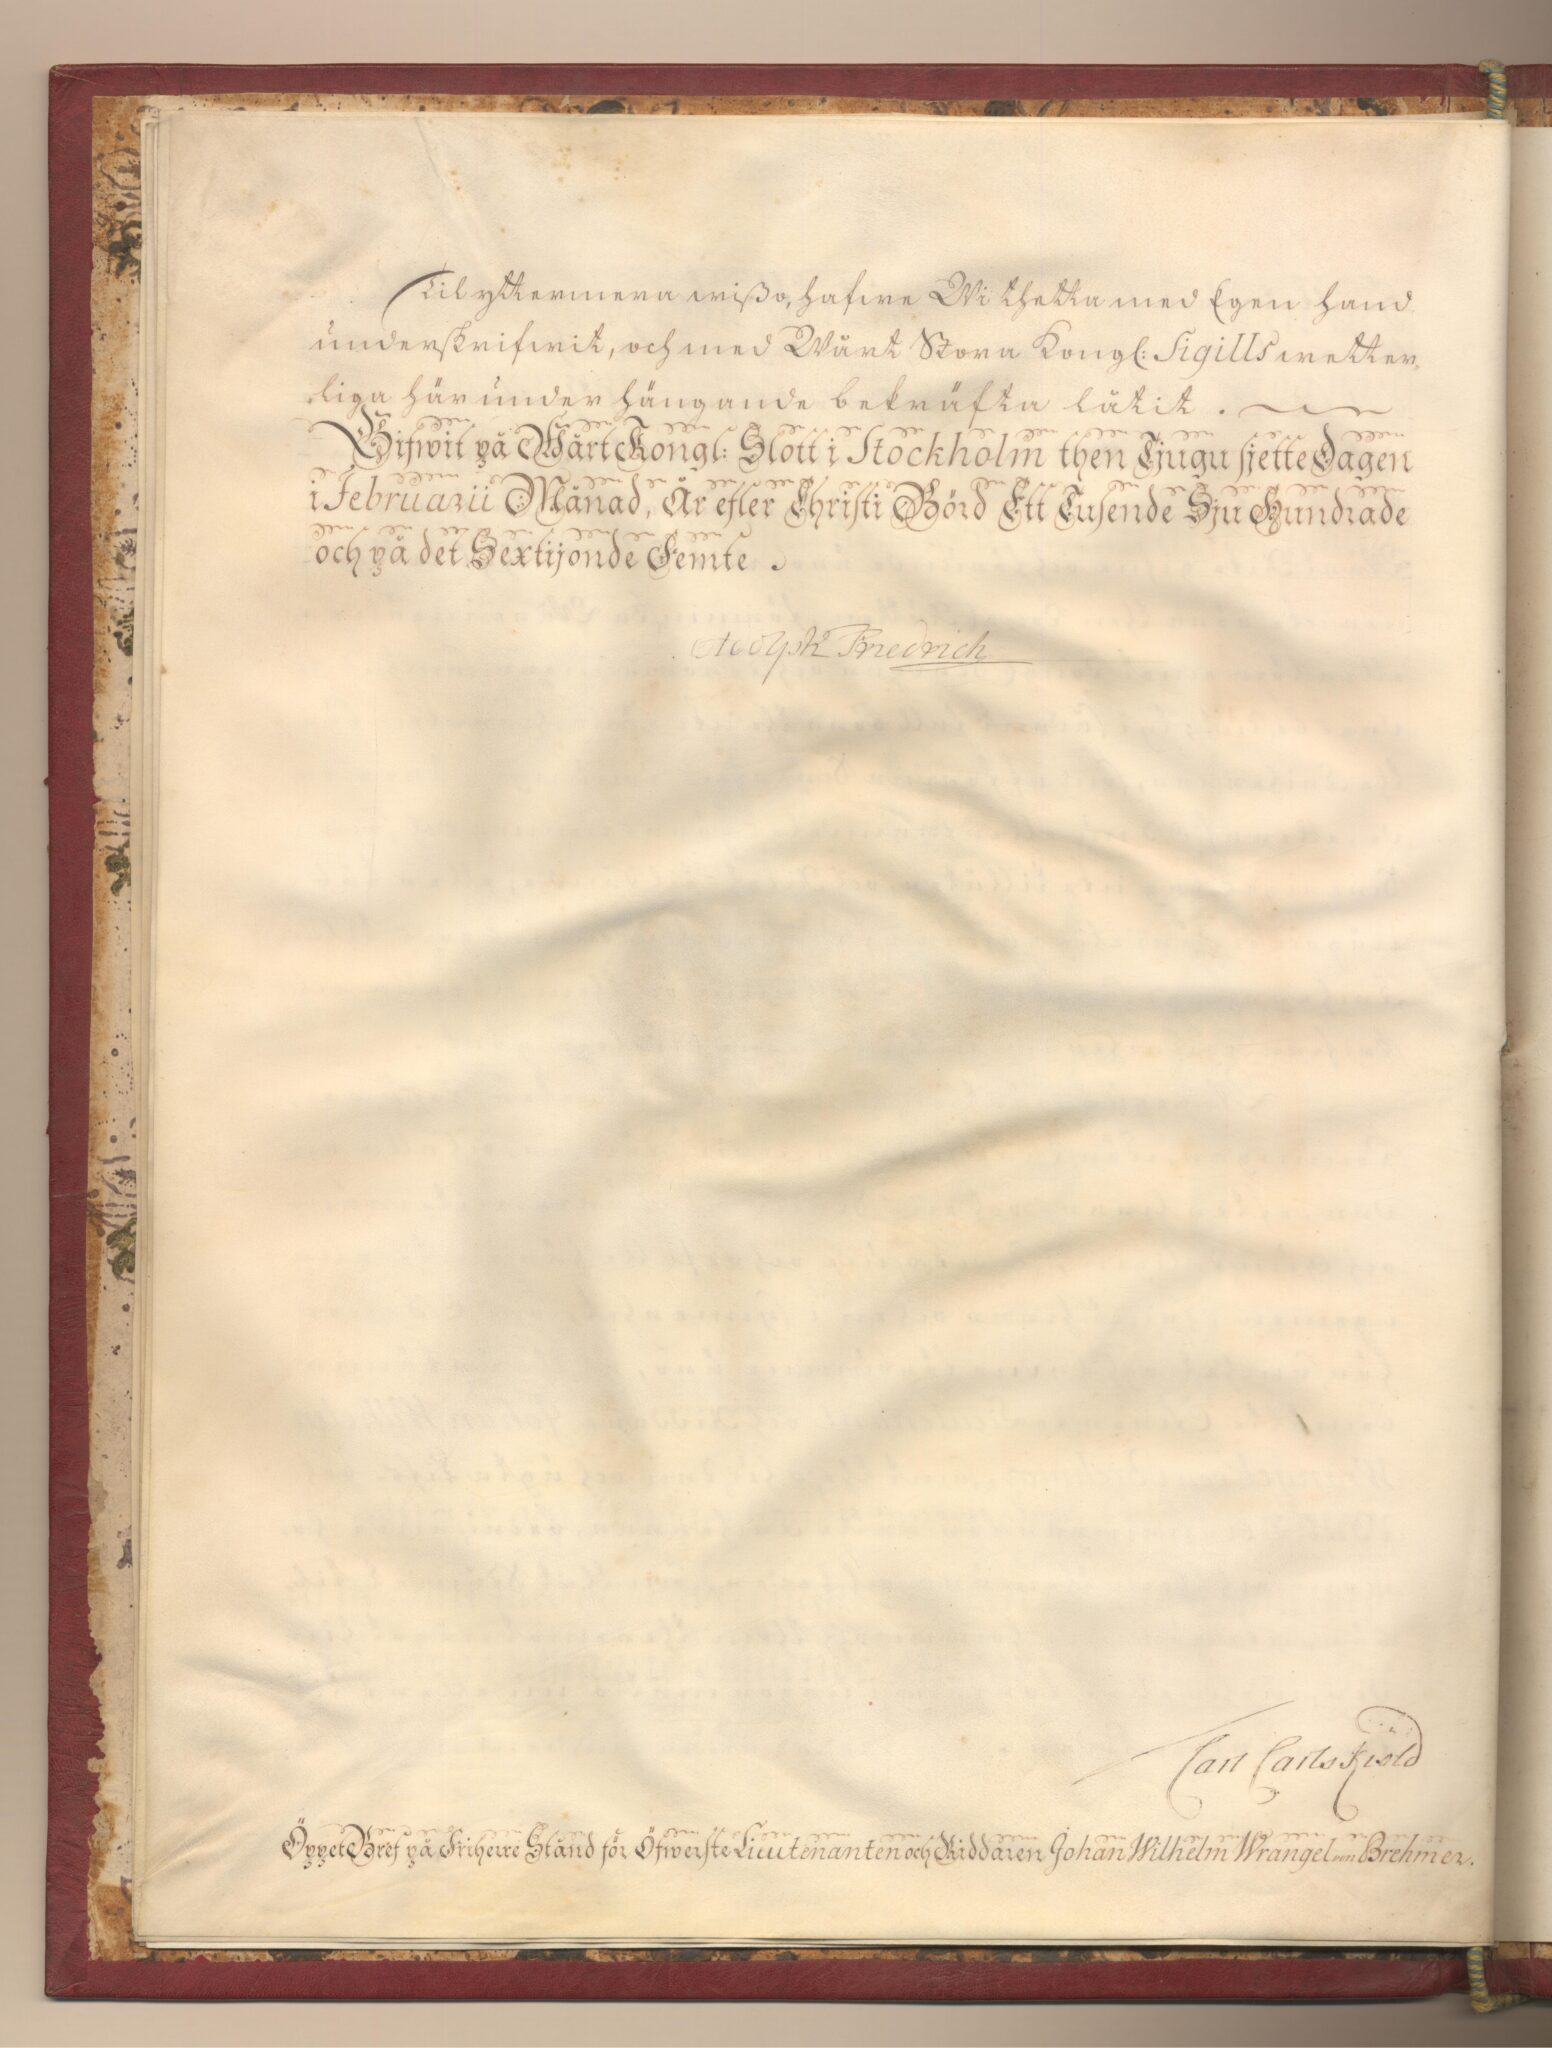 Til yttermera wißo, hafwe Wi thetta med Egen hand
underskrifwit, och med Wårt Stora Kongl: Sigills wetter-
liga här under hängande bekräfta låtit.
Gifwit på Wårt Kongl: Slott i Stockholm then Tjugu sjette Dagen
i Februarii Månad, År efter Christi Börd Ett Tusende Sju Hundrade
och på det Sextijonde Femte.
Adolph Friedrich
Carl Carlskiöld
Öppet Bref på Friherre Stånd för Öfwerste Lieutenanten och Riddaren Johan Wilhelm Wrangel von Brehmer.